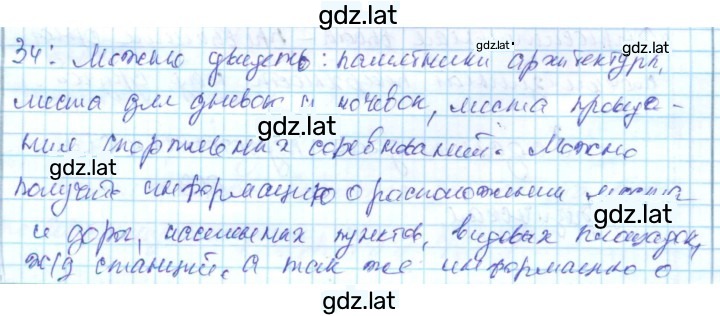 gdz.lat
34: Можно увидеть: памятники архитектуры,
gdz.lat
места для дневок и ночевок, места проведе-
gdz.lat
ния спортивных соревнований. Можно
gdz.lat
получить информацию о расположении
gdz.lat
и дорог, населенных пунктов, видовых площадок,
gdz.lat
ж/д станций, а так же информацию о
gdz.lat